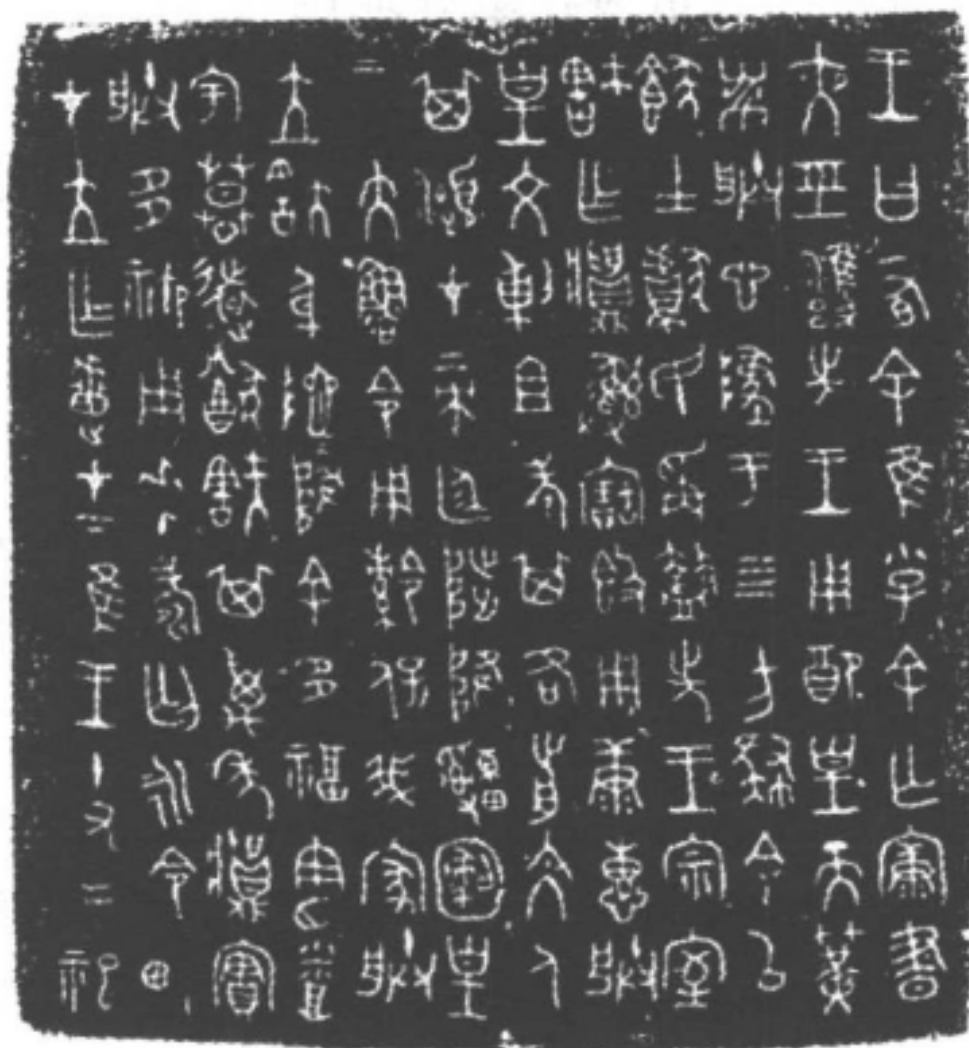 王曰有余隹小子余亡康晝
夜巠雍先王用配皇天簧
黹朕心墜于四方肆余以
餕士獻民爯盩先王宗室
㝬乍䵼彝寶簋用康惠朕
皇文剌且考其各前文人
其瀕才帝廷陟降䌛圝皇
帝大魯令用令保我家朕
立㝬身阤阤降余多福憲烝
宇慕遠猷㝬其萬年䵼實
朕多禦用𠦪壽匄永令畯
才立乍疐才下隹王十又二祀